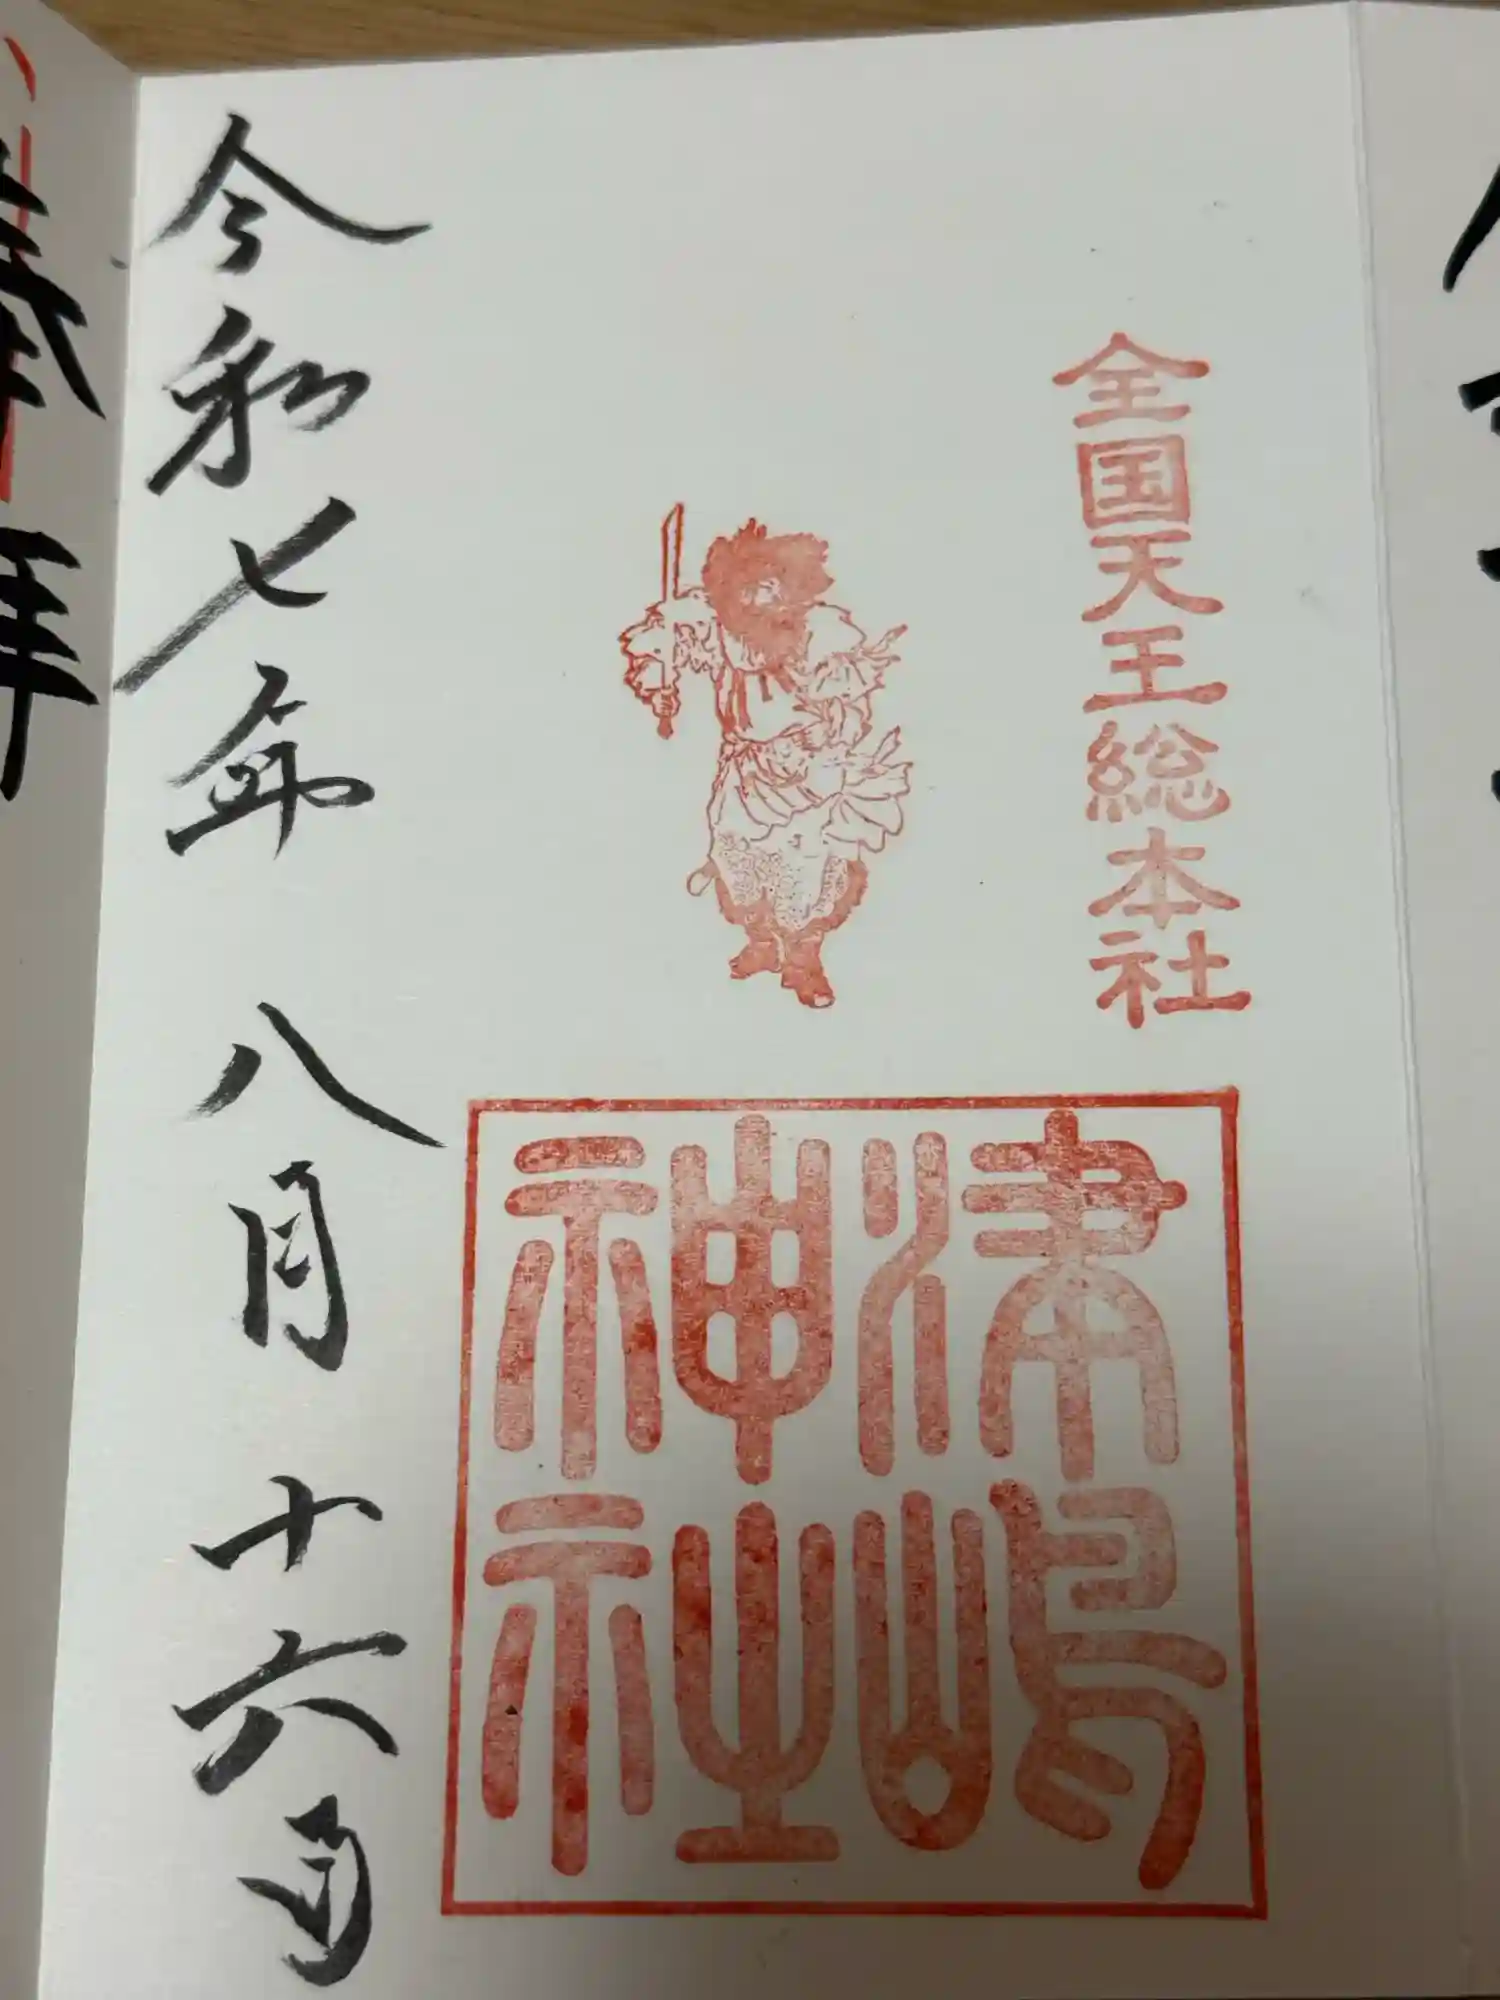 全国天王総本社
津嶋
神社
令和七年八月十六日
奉拝